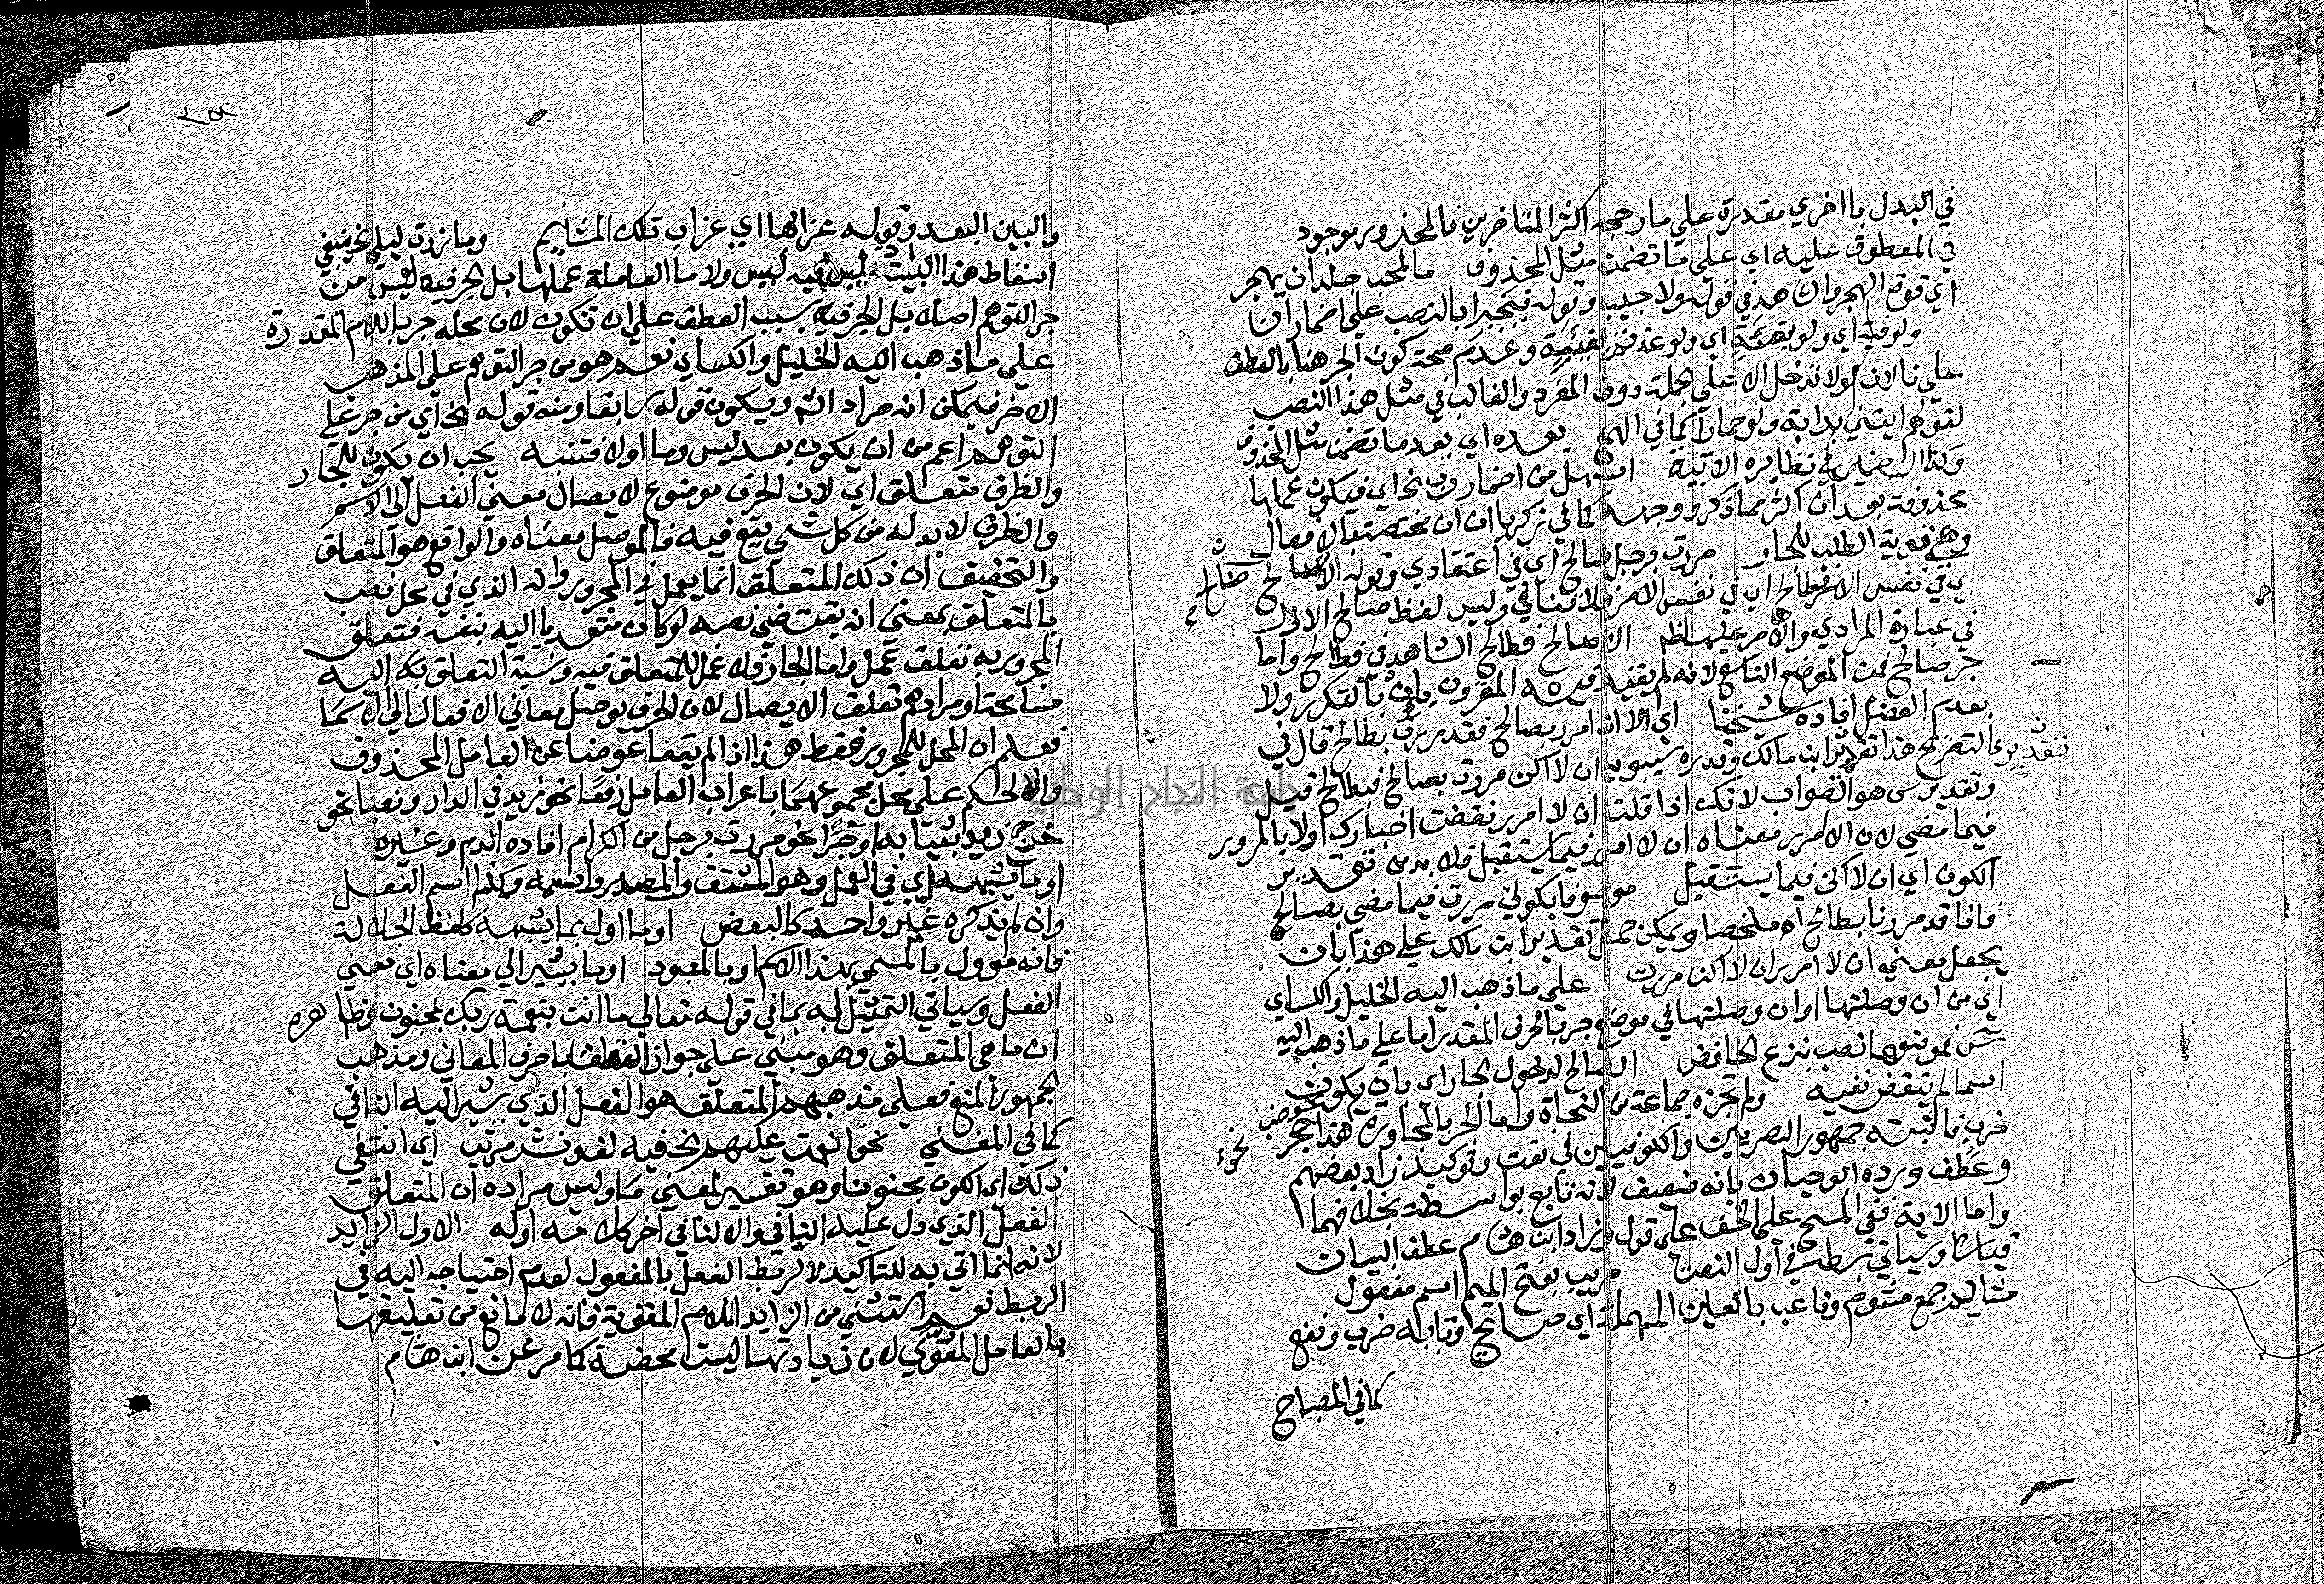 في البدل با اخري مقدرة علي ما رجحه اكثر المتاخرين فالمحذور موجود
في المعطوف عليه اي علي ما تضمن مثل المحذوف ما لمحب جلد ان يهجر
اي قوة الهجر وان هذفي قوله ولا حبيب وقوله فيجبرا بالنصب علي اضمار ان
ولو فئة اي ولو بفئة اي ولو عذتم بفئة وعدم صحة كون الجر هنا بالعطف
علي نا لان لو لا تدخل الا علي الجملة دون المفرد والغالب في مثل هذا النصب
لقولهم ايتني بدابة ولو حمارا كما في الهمع بعده اي بعد ما تضمن مثل المحذوف
وكذا الضمير في نظايره الاتية اسهل من اضمار رب الخ اي فيكون عملها
محذوفة بعد ان اكثر مما ذكر ووجهه كما في زكريا ان ان مختصة بالافعال
وهي قوية الطلب للجار مررت برجل صالح اي في اعتقادي وقوله الا صالح فطالح
اي في نفس الامر فطالح اي في نفس الامر فلا تنافي وليس لفظ صالح الاول
في عبارة المرادي والامر عليها ظاهر الا صالح فطالح الشاهد في فطالح واما
جر صالح فمن الموضع التاسع لانه لم يقيد فيه المقرون بان بالتكرر ولا
بعدم الفصل افاده شيخنا اي الا ان امرر بصالح فقد مررت بطالح قال في
التصريح هذا تقدير ابن مالك وقدره سيبويه ان لا اكن مررت بصالح فبطالح قيل
تقدير
وتقدير س هو الصواب لانك اذا قلت ان لا امرر نقضت اخبارك اولا بالمرور
فيما مضي لان الا امرر معناه ان لا امرر فيما يستقبل فلا بد من تقدير
الكون اي ان لا اكن فيما يستقبل موصوفا بكوني مررت فيما مضي بصالح
فانا قد مررنا بطالح اه ملخصا ويمكن حمل تقدير ابن مالك علي هذا بان
يجعل معني ان لا امرر ان لا اكن مررت علي ما ذهب اليه الخليل والكساي
اي من ان وصلتها او ان وصلتها في موضع جر بالحرف المقدر اما علي ما ذهب اليه
س فموضعها نصب بنزع الخافض الصالح لدخول الجار اي بان يكون
اسما لم ينتقض نفيه ولم تجزه جماعة من النحاة واما الجر بالمجاورة نحو هذا جحر ضب
خرب فاثبته جمهور البصريين والكوفيين في نعت وتوكيد زاد بعضهم
وعطف ورده ابو حيان بانه ضعيف لانه تابع بواسطة بخلافهما
واما الاية ففي المسح علي الخف علي قول وزاد ابن هشام عطف البيان
قياسا وسياتي بسطه في اول النعت مريب بفتح الميم اسم مفعول
مشاليم جمع مشئوم وناعب بالعين المهملة اي صايح وبابه ضرب ونفع
كما في المصباح
والبين البعد وقوله غرابها اي غراب تلك المشاييم وما زرت ليلي الخ ينبغي
اسقاط هذا البيت اذ ليس فيه ليس ولا ما العاملة عملها بل الجر فيه ليس من
جر التوهم اصلا بل الجر فيه بسبب العطف علي ان تكون لان محله جر باللام المقدرة
علي ما ذهب اليه الخليل والكساي نعم هو من جر التوهم علي المذهب
الاخر فيمكن انه مراد الشم ويكون قوله سابقا ومنه قوله الخ اي من جر علي
التوهم اعم من ان يكون بعد ليس وما اولا فتنبه يجب ان يكون للجار
والظرف متعلق اي لان الحرف موضوع لايصال معني الفعل الي الاسم
والظرف لا بد له من كل شي يقع فيه فالموصل معناه والواقع هو المتعلق
والتحقيق ان ذلك المتعلق انما يعمل في المجرور وانه الذي في محل نصب
بالمتعلق بمعني ان يقتضي نصبه لو كان متعديا اليه بنفسه فتعلق
المجرور به تعلق عمل واما الجار فلا عمل للمتعلق فيه ونسبة التعلق به اليه
مسامحة ومرادهم تعلق الايصال لان الحرف يوصل معاني الافعال الي الاسما
فعلم ان المحل للمجرور فقط هذا اذا لم يقعا عوضا عن العامل المحذوف
والا حكم علي محل مجموعهما باعراب العامل رفعا نحو زيد في الدار ونصبا نحو
خرج زيد بثيابه او جرا نحو مررت برجل من الكرام افاده الدم وغيره
او ما يشبهه اي في العمل وهو المشتق والمصدر واسمه وكذا اسم الفعل
وان لم يذكره غير واحد كالبعض او ما اول بما يشبهه كلفظ الجلالة
فانه مؤول بالمسمي بهذا الاسم او بالمعبود او ما يشير الي معناه اي معني
الفعل وسياتي التمثيل له بما في قوله تعالي ما انت بنعمة ربك بمجنون وظاهره
ان ما هي المتعلق وهو مبني علي جواز التعلق باحرف المعاني ومذهب
الجمهور المنع فعلي مذهبهم المتعلق هو الفعل الذي يشير اليه النافي
كما في المغني نحو انعمت عليهم الخ فيه لف ونشر مرتب اي انتفي
ذلك اي الكون مجنونا وهو تفسير لمعني ما وليس مراده ان المتعلق
الفعل الذي دل عليه النافي والا لنافي اخر كلامه اوله الاول الزايد
لانه انما اتي به للتاكيد لا لربط الفعل بالمفعول لعدم احتياجه اليه في
الربط نعم استثني من الزايد اللام المقوية فانه لا مانع من تعليقها
بالعامل المقوي لان زيادتها ليست محضة كما مر عن ابن هشام
جامعة النجاح الوطنية